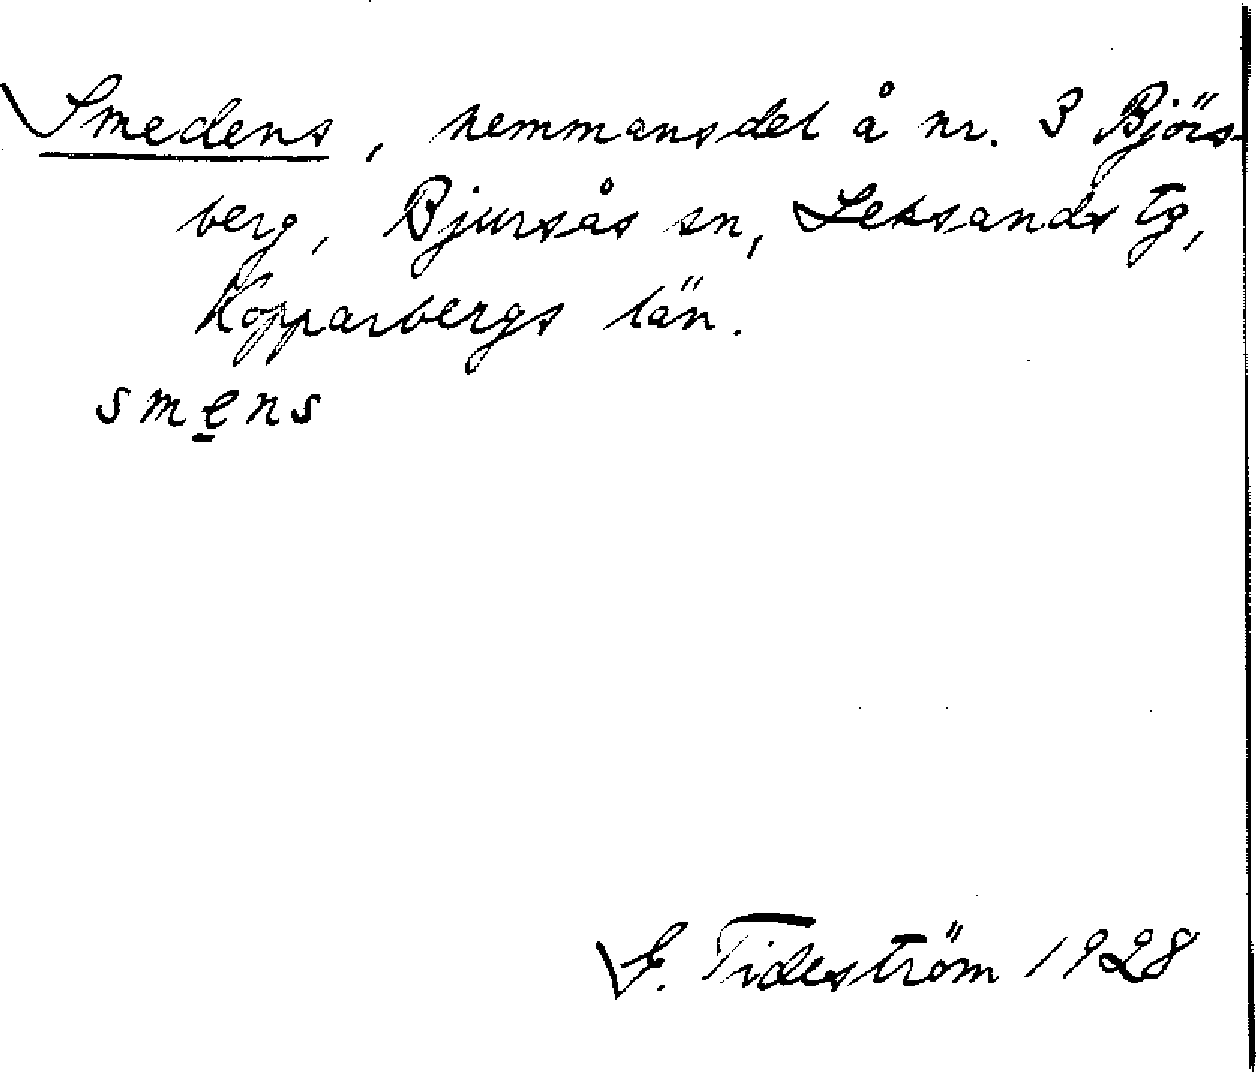 Smedens, hemmansdel å nr. 3 Björs-
berg, Bjursås sn, Leksands tg,
Kopparbergs län.
smens
G. Tideström 1928